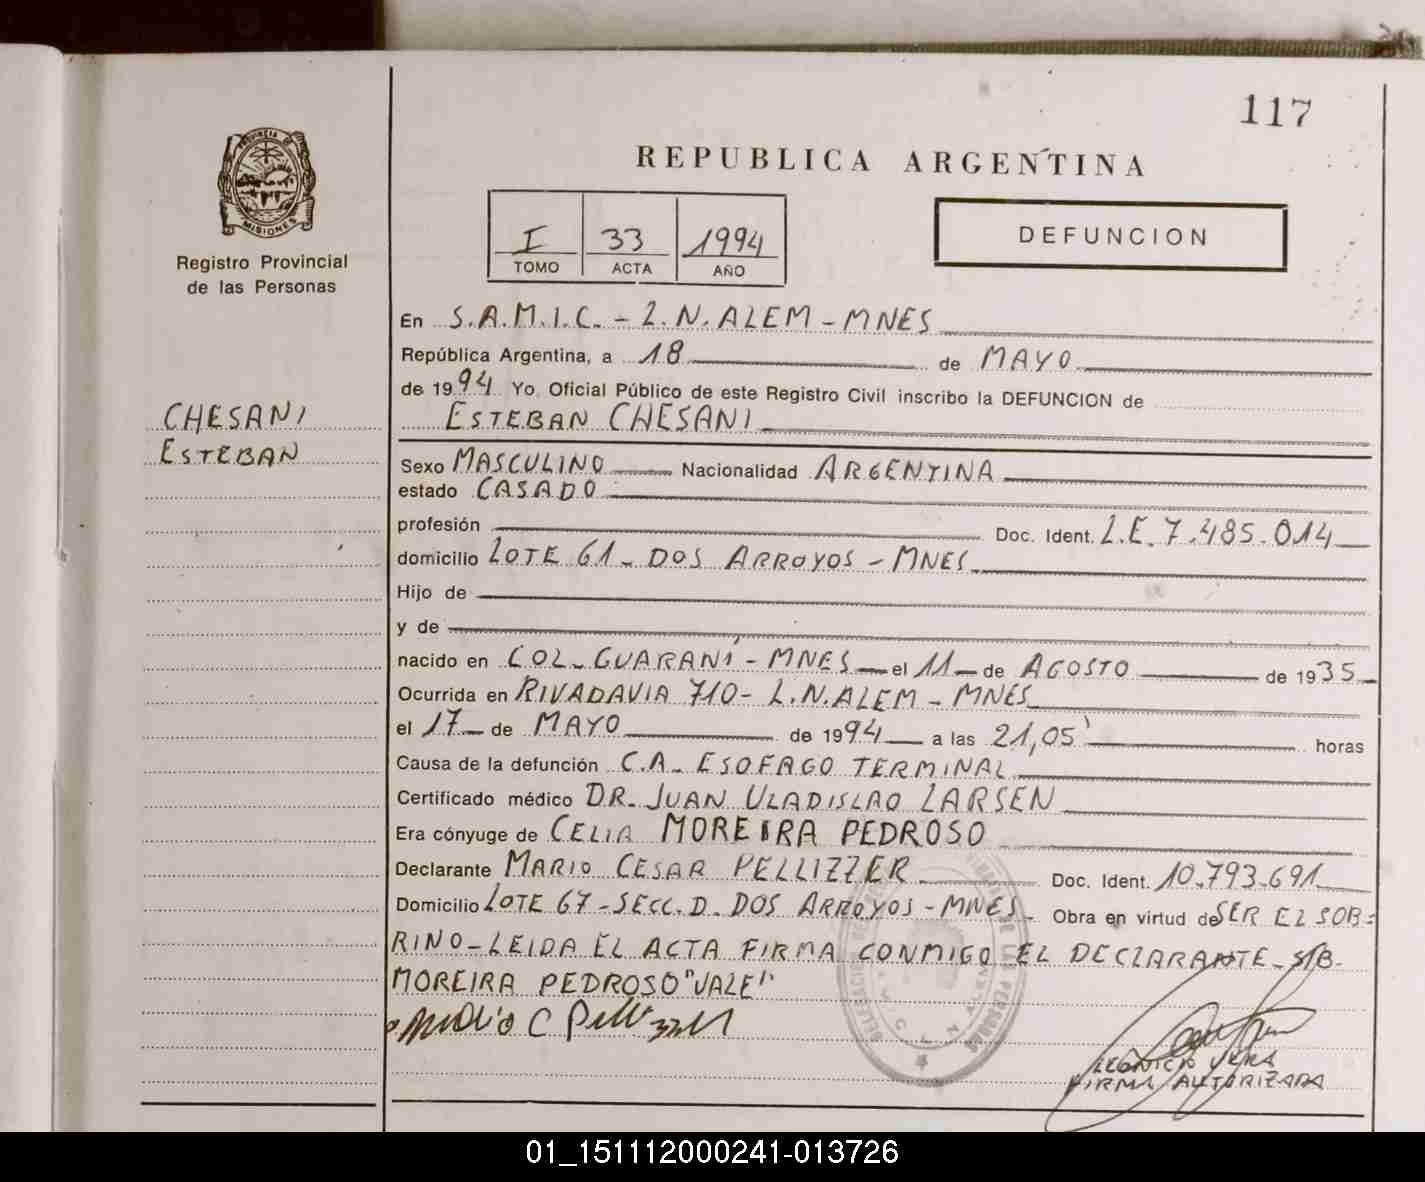 117
REPUBLICA ARGENTINA
PROVINCIA DE
MISIONES
Registro Provincial
de las Personas
I 33 1994
TOMO ACTA AÑO
DEFUNCION
En S.A.M.I.C. - L.N. ALEM - MNES
República Argentina, a 18 de MAYO
de 1994 Yo, Oficial Público de este Registro Civil inscribo la DEFUNCION de
ESTEBAN CHESANI
CHESANI
ESTEBAN
Sexo MASCULINO Nacionalidad ARGENTINA
estado CASADO
profesión Doc. Ident. L.E. 7.485.014
domicilio LOTE 61 - DOS ARROYOS - MNES
Hijo de
y de
nacido en COL. GUARANÍ - MNES el 11 de AGOSTO de 1935
Ocurrida en RIVADAVIA 710 - L.N. ALEM - MNES
el 17 de MAYO de 1994 a las 21,05' horas
Causa de la defunción C.A. ESOFAGO TERMINAL
Certificado médico DR. JUAN ULADISLAO LARSEN
Era cónyuge de CELIA MOREIRA PEDROSO
Declarante MARIO CESAR PELLIZZER Doc. Ident. 10.793.691
Domicilio LOTE 67 - SECC. D. DOS ARROYOS - MNES. Obra en virtud de SER EL SOB=
RINO - LEIDA EL ACTA FIRMA CONMIGO EL DECLARANTE - S/B.
MOREIRA PEDROSO "VALE"
Mario C Pellizzer
LEONICIO VERA
FIRMA AUTORIZADA
01_151112000241-013726